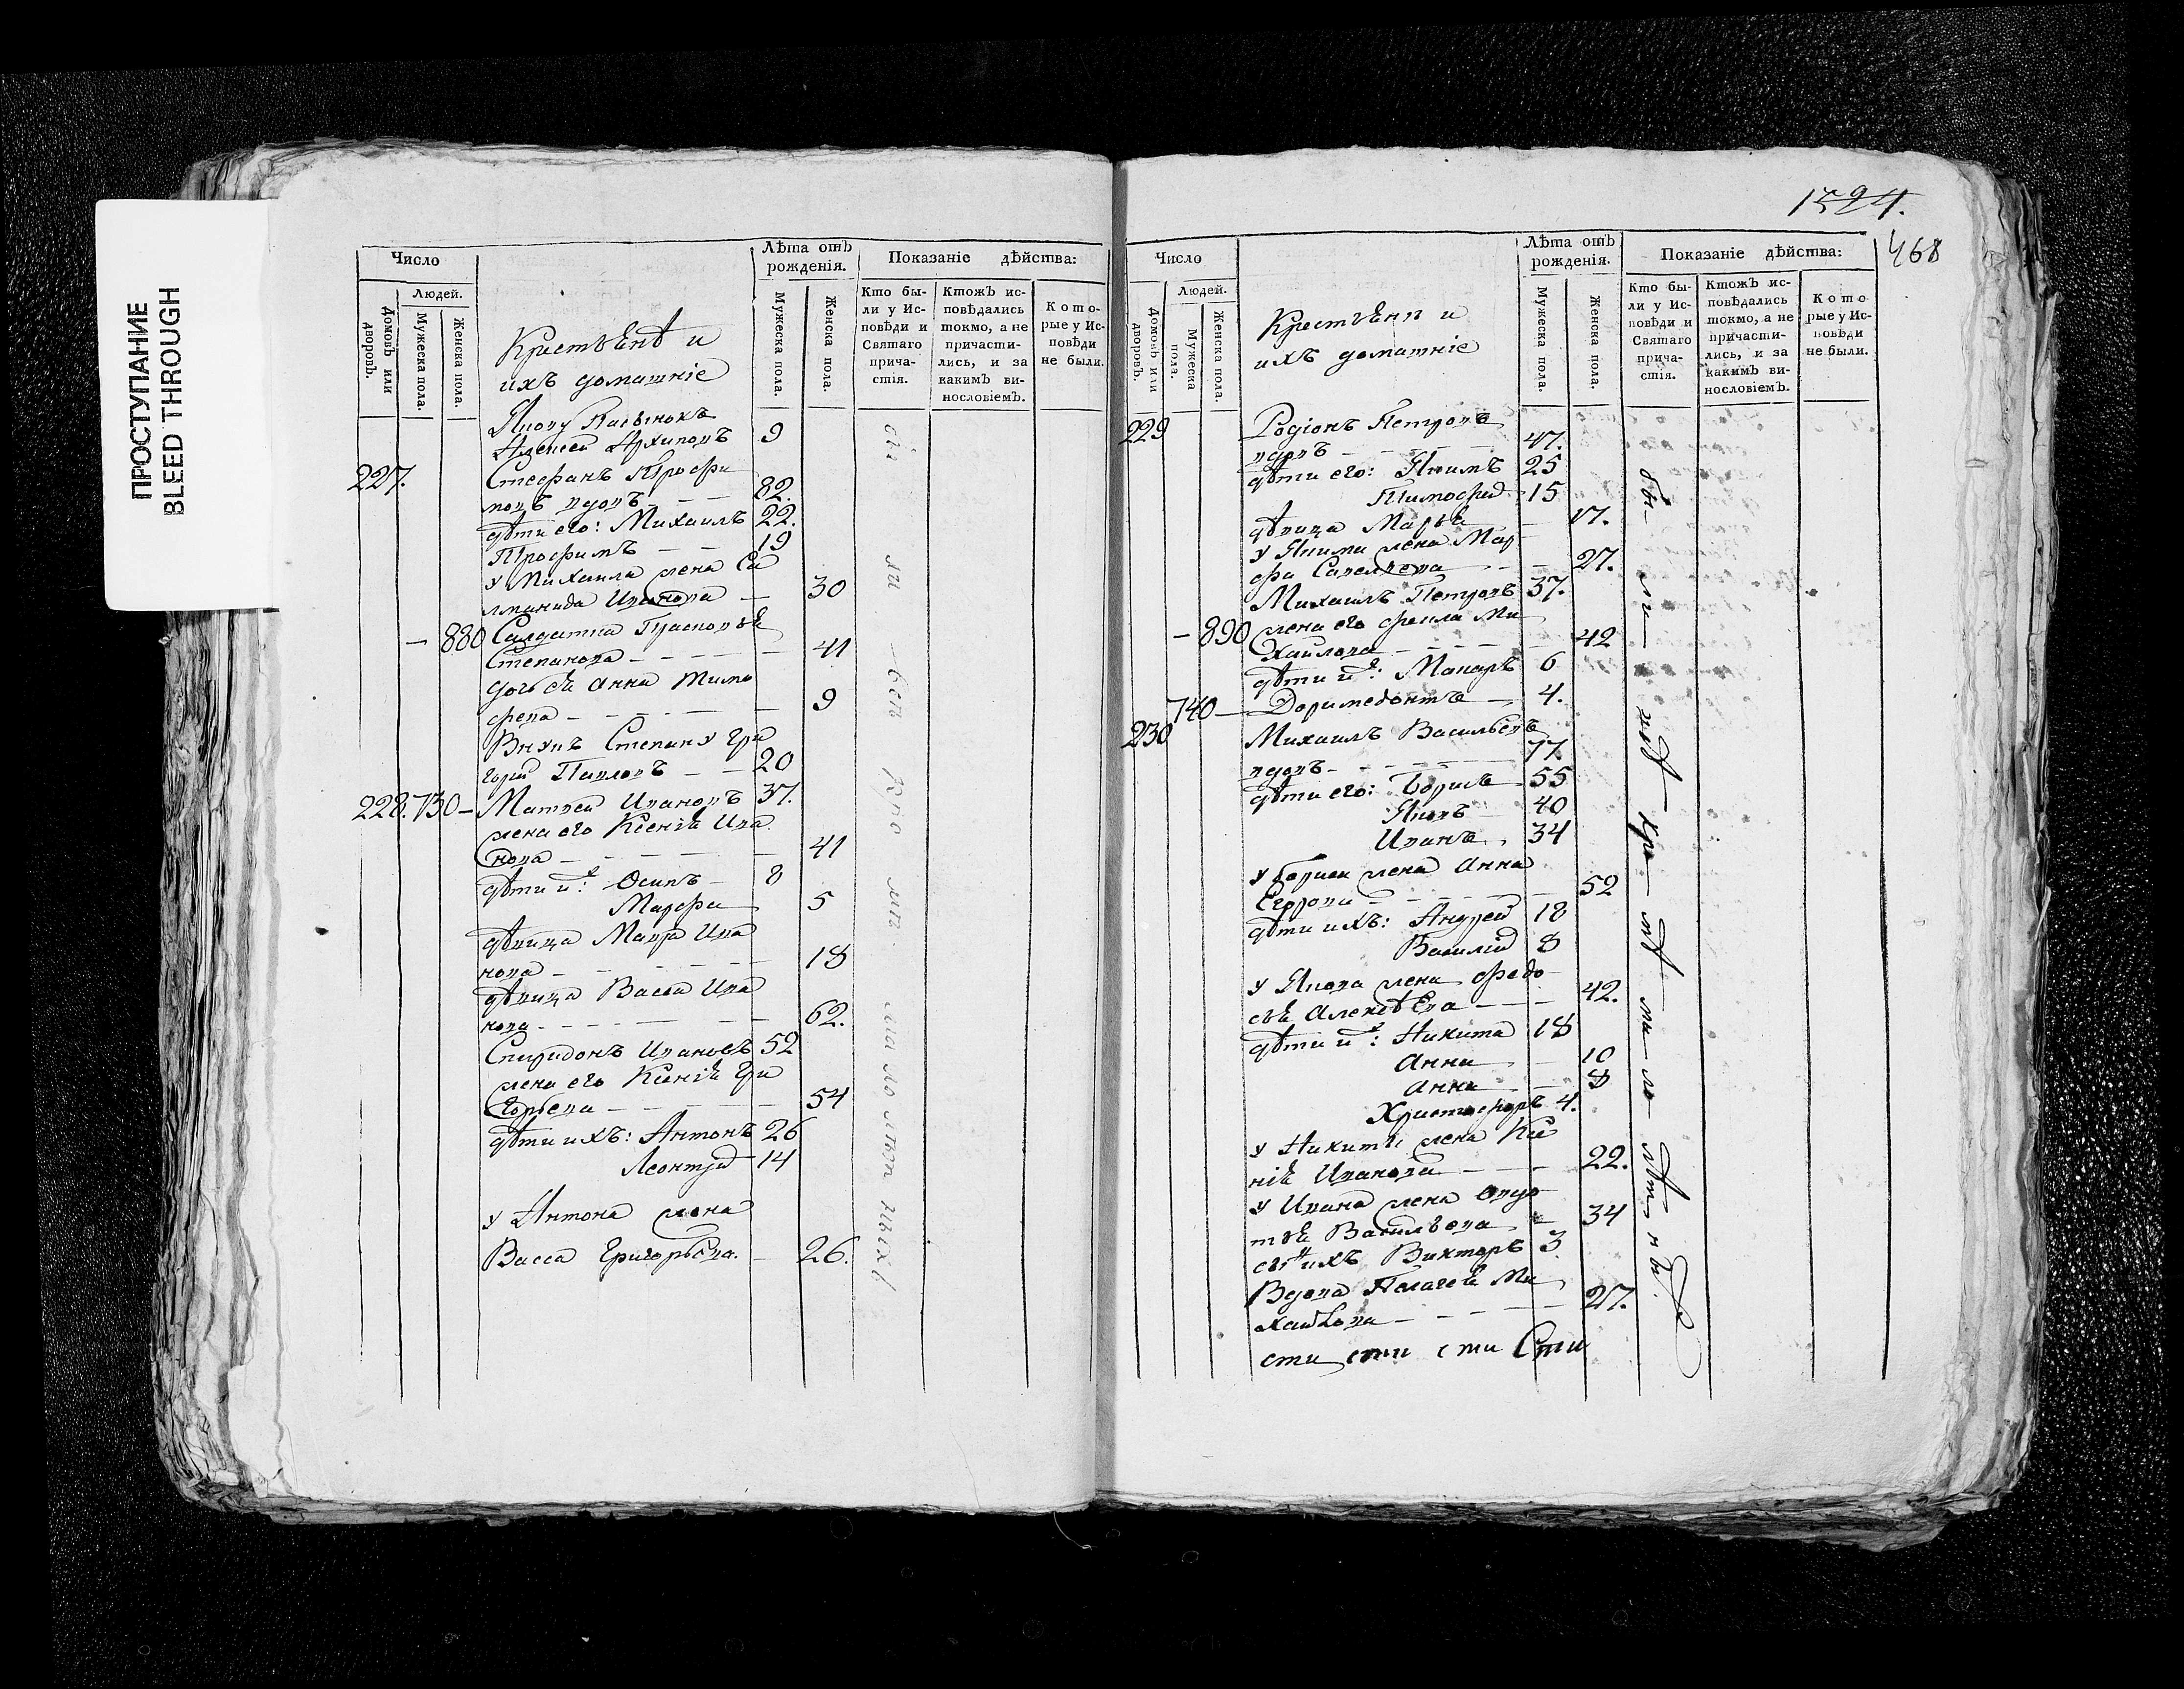 ПРОСТУПАНИЕ
BLEED THROUGH
Число
Людей.
Домовъ или дворовъ.
Мужеска пола.
Женска пола.
Лѣта отъ рожденія.
Мужеска пола.
Женска пола.
Показаніе дѣйства:
Кто бы-
ли у Ис-
повѣди и
Святаго
прича-
стія.
Ктожъ ис-
повѣдались
токмо, а не
причасти-
лись, и за
какимъ ви-
нословіемъ.
Кото-
рые у Ис-
повѣди
не были.
ихъ домашніе
Алексей Архиповъ 9
227. Стефанъ Трофи
мовъ вдовъ 82.
дѣти его: Михаилъ 22.
Трофимъ 19
у Михаила жена
Ивановна 30
880 Салдатка
Степанова 41
дочь ея Анна Тимо
феева 9
Внукъ Степану Гри
горій Павловъ 20
228. 730 Матвей Ивановъ 37.
жена его Ксенія Ива
нова 41
дѣти и: Осипъ 8
Марфа 5
дѣвица Мавра Ива
нова 18
дѣвица Васса Ива
нова 62.
Спиридонъ Ивановъ 52
жена его Ксенія Гри
горьева 54
дѣти ихъ: Антонъ 26
Леонтій 14
у Антона жена
Васса Григорьева. 26.
1524.
468
Число
Людей.
Домовъ или дворовъ.
Мужеска пола.
Женска пола.
Лѣта отъ рожденія.
Мужеска пола.
Женска пола.
Показаніе дѣйства:
Кто бы-
ли у Ис-
повѣди и
Святаго
прича-
стія.
Ктожъ ис-
повѣдались
токмо, а не
причасти-
лись, и за
какимъ ви-
нословіемъ.
Кото
рые у Ис-
повѣди
не были.
ихъ домашніе
229 Родіонъ Петровъ
вдовъ 47.
дѣти его: Якимъ 25
Тимофей 15
дѣвица Марья 17.
у Якима жена Мар
фа Савельева 27.
Михаилъ Петровъ 37.
890 жена его Фекла Ми
хайлова 42
дѣти и: Макаръ 6
740 Доримедонтъ 4.
230 Михаилъ Васильевъ
вдовъ 77.
дѣти его: Борисъ 55
Яковъ 40
Иванъ 34
у Бориса жена Анна
Егорова 52
дѣти ихъ: Андрей 18
Василій 8
у Якова жена Федо
сья Алексѣева 42.
дѣти и: Никита 18
Анна 10
Анна 8
Христофоръ 4.
у Никиты жена Ксе
нія Иванова 22.
у Ивана жена
Васильева 34
сынъ ихъ Викторъ 3
Вдова Палагея Ми
хайлова 27.
сти сти сти Сти